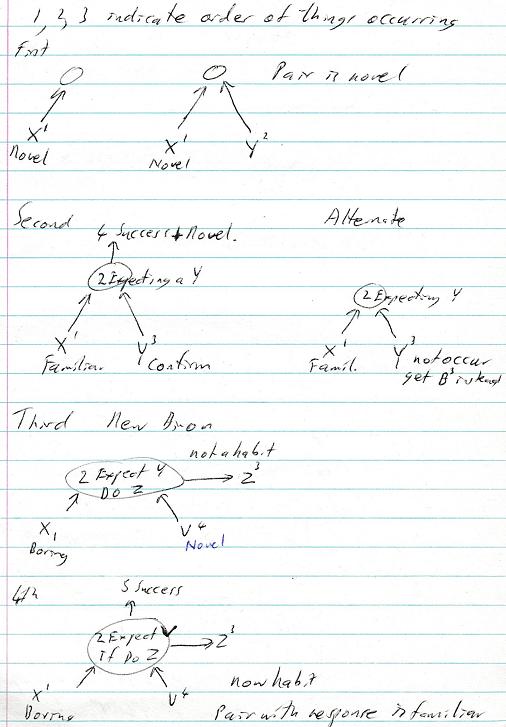 1, 2, 3 indicate order of things occurring
First
Pair is novel
X 1
Novel
X 1
Novel
Y 2
Second
Alternate
4 Success + Novel.
2 Expecting a Y
2 Expecting Y
X 1
Familiar
Y 3
Confirm
X 1
Famil.
Y 3 not occur
get B 3 instead
Third New
not a habit
2 Expect Y
Do Z
Z 3
X 1
Boring
V 4
Novel
4th
5 Success
2 Expect V
if Do Z
Z 3
X 1
Boring
V 4
now habit
Pair with response is familiar